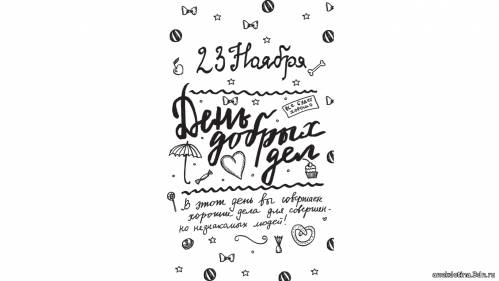 23 Ноября
День
добрых
дел
все будет
хорошо
В этот день вы совершаете
хорошие дела для совершен-
но незнакомых людей!
anekdotina.3dn.ru